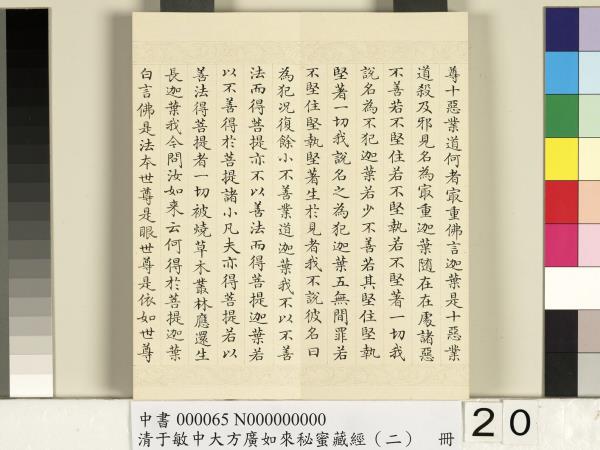 尊十惡業道何者㝡重佛言迦葉是十惡業
道殺及邪見名為㝡重迦葉隨在在處諸惡
不善若不堅住若不堅執若不堅著一切我
說名為不犯迦葉若少不善若其堅住堅執
堅著一切我說名之為犯迦葉五無間罪若
不堅住堅執堅著生於見者我不說彼名曰
為犯况復餘小不善業道迦葉我不以不善
法而得菩提亦不以善法而得菩提迦葉若
以不善得於菩提諸小凡夫亦得菩提若以
善法得菩提者一切被燒草木叢林應還生
長迦葉我今問汝如来云何得於菩提迦葉
白言佛是法本世尊是眼世尊是依如世尊
中書 000065 N000000000
清于敏中大方廣如來秘蜜藏經（二） 冊
20